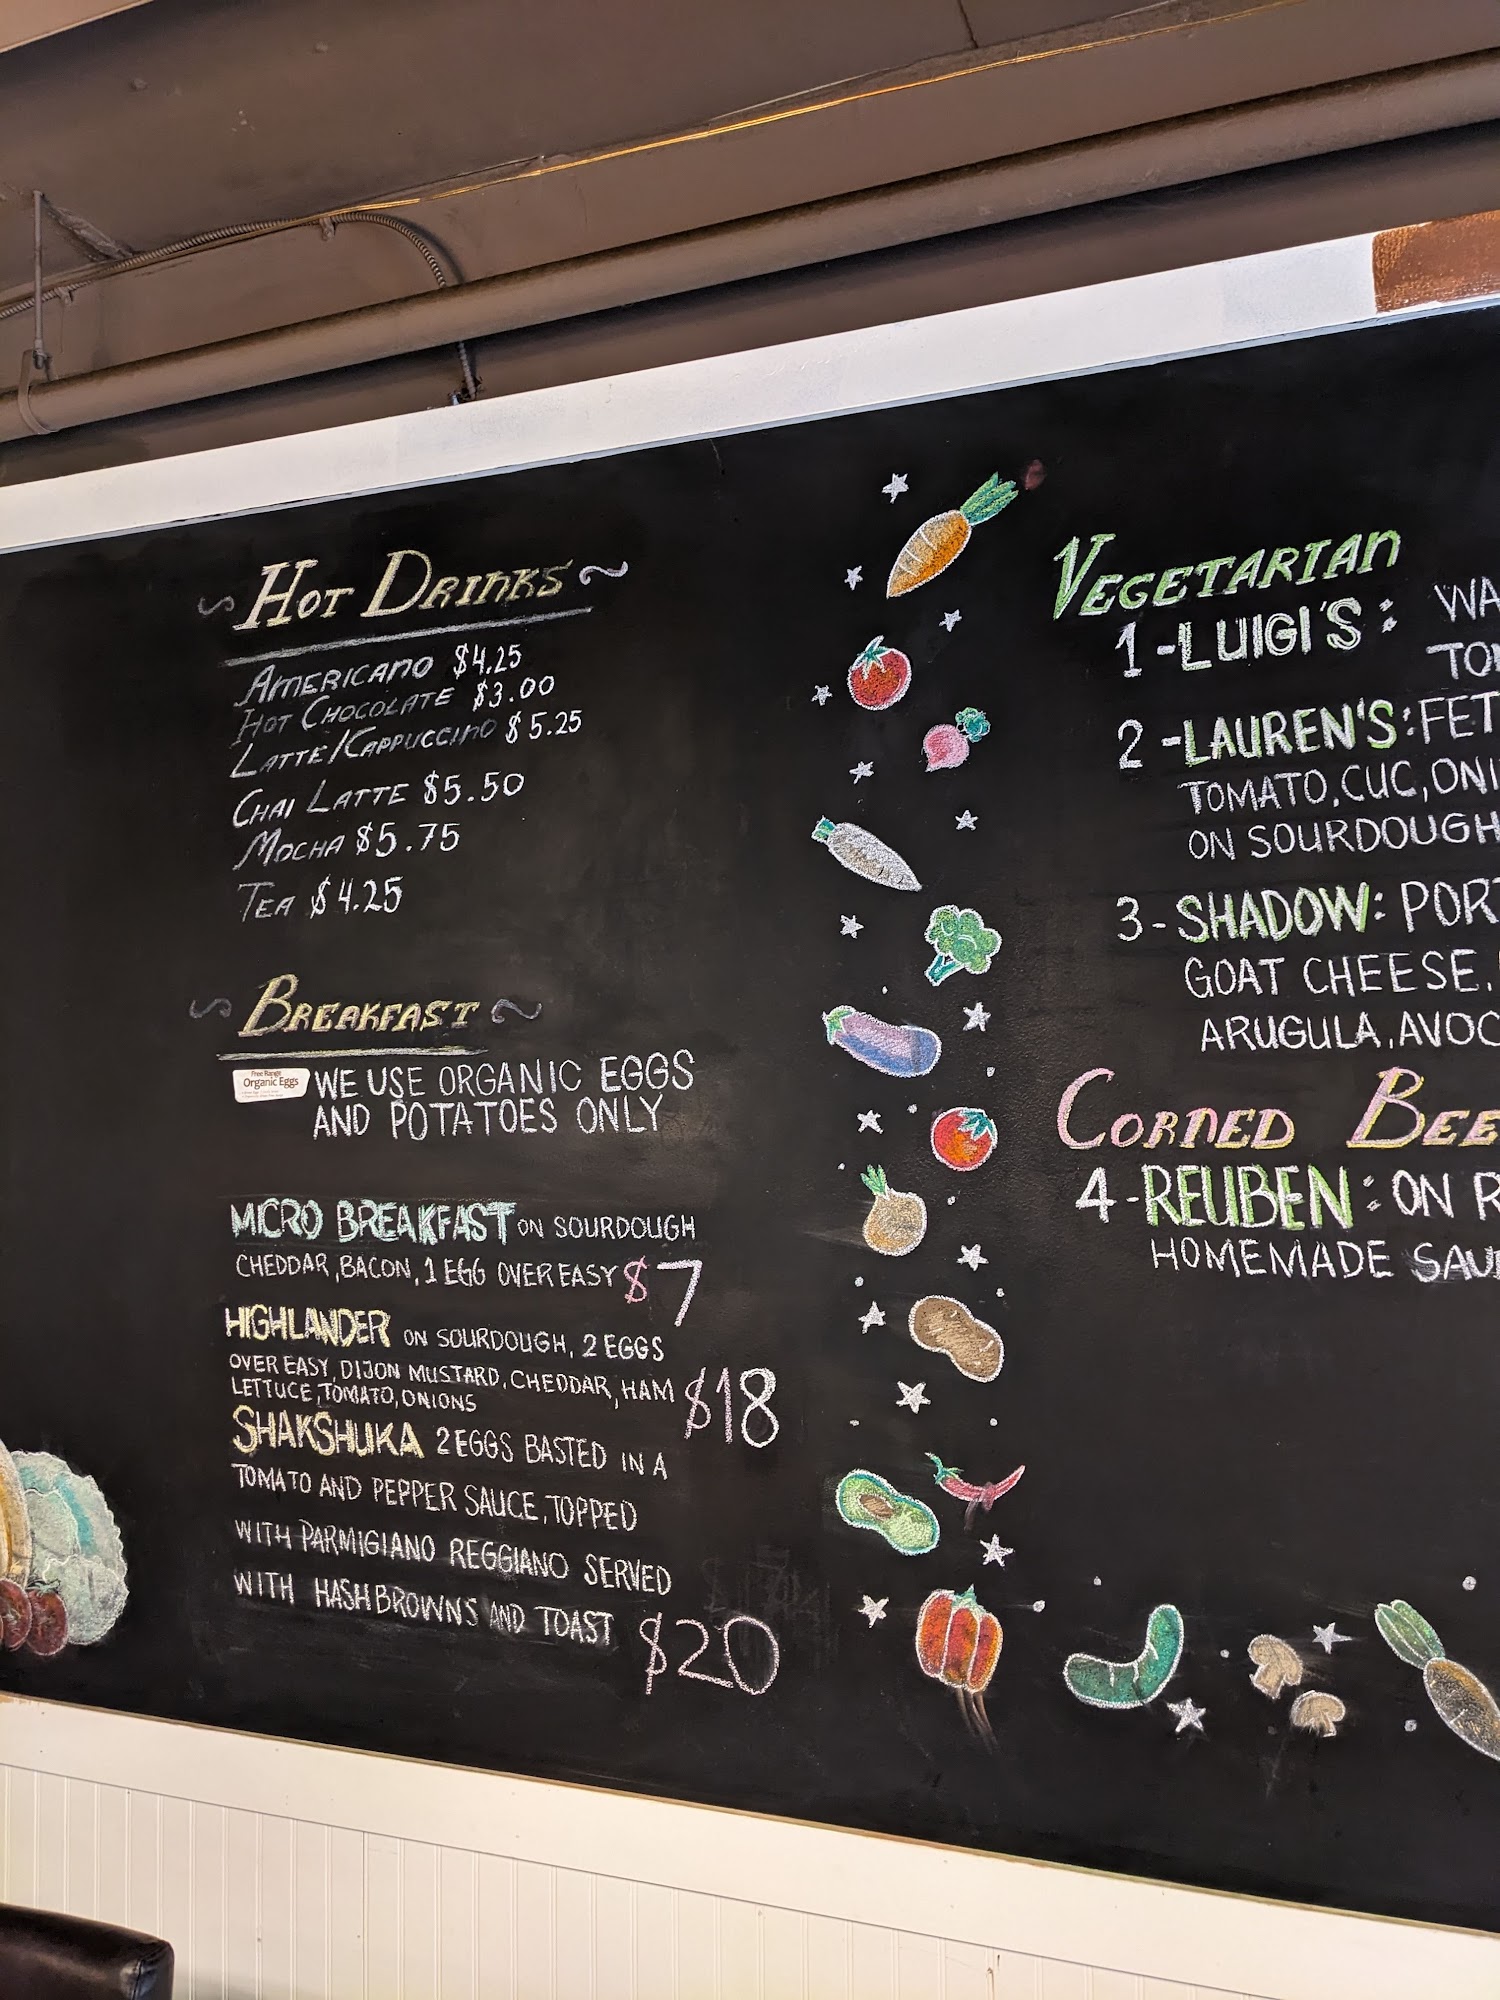 Hot Drinks
Americano $4.25
Hot Chocolate $3.00
Latte/Cappuccino $5.25
Chai Latte $5.50
Mocha $5.75
Tea $4.25
Breakfast
Free Range
Organic Eggs
WE USE ORGANIC EGGS
AND POTATOES ONLY
MICRO BREAKFAST ON SOURDOUGH
CHEDDAR, BACON, 1 EGG OVER EASY $7
HIGHLANDER ON SOURDOUGH, 2 EGGS
OVER EASY, DIJON MUSTARD, CHEDDAR, HAM
LETTUCE, TOMATO, ONIONS $18
SHAKSHUKA 2 EGGS BASTED IN A
TOMATO AND PEPPER SAUCE, TOPPED
WITH PARMIGIANO REGGIANO SERVED
WITH HASHBROWNS AND TOAST $20
Vegetarian
1-LUIGI'S: WA
TO
2-LAUREN'S: FET
TOMATO, CUC, ONI
ON SOURDOUGH
3-SHADOW: POR
GOAT CHEESE,
ARUGULA, AVOC
Corned Bee
4-REUBEN: ON R
HOMEMADE SAU